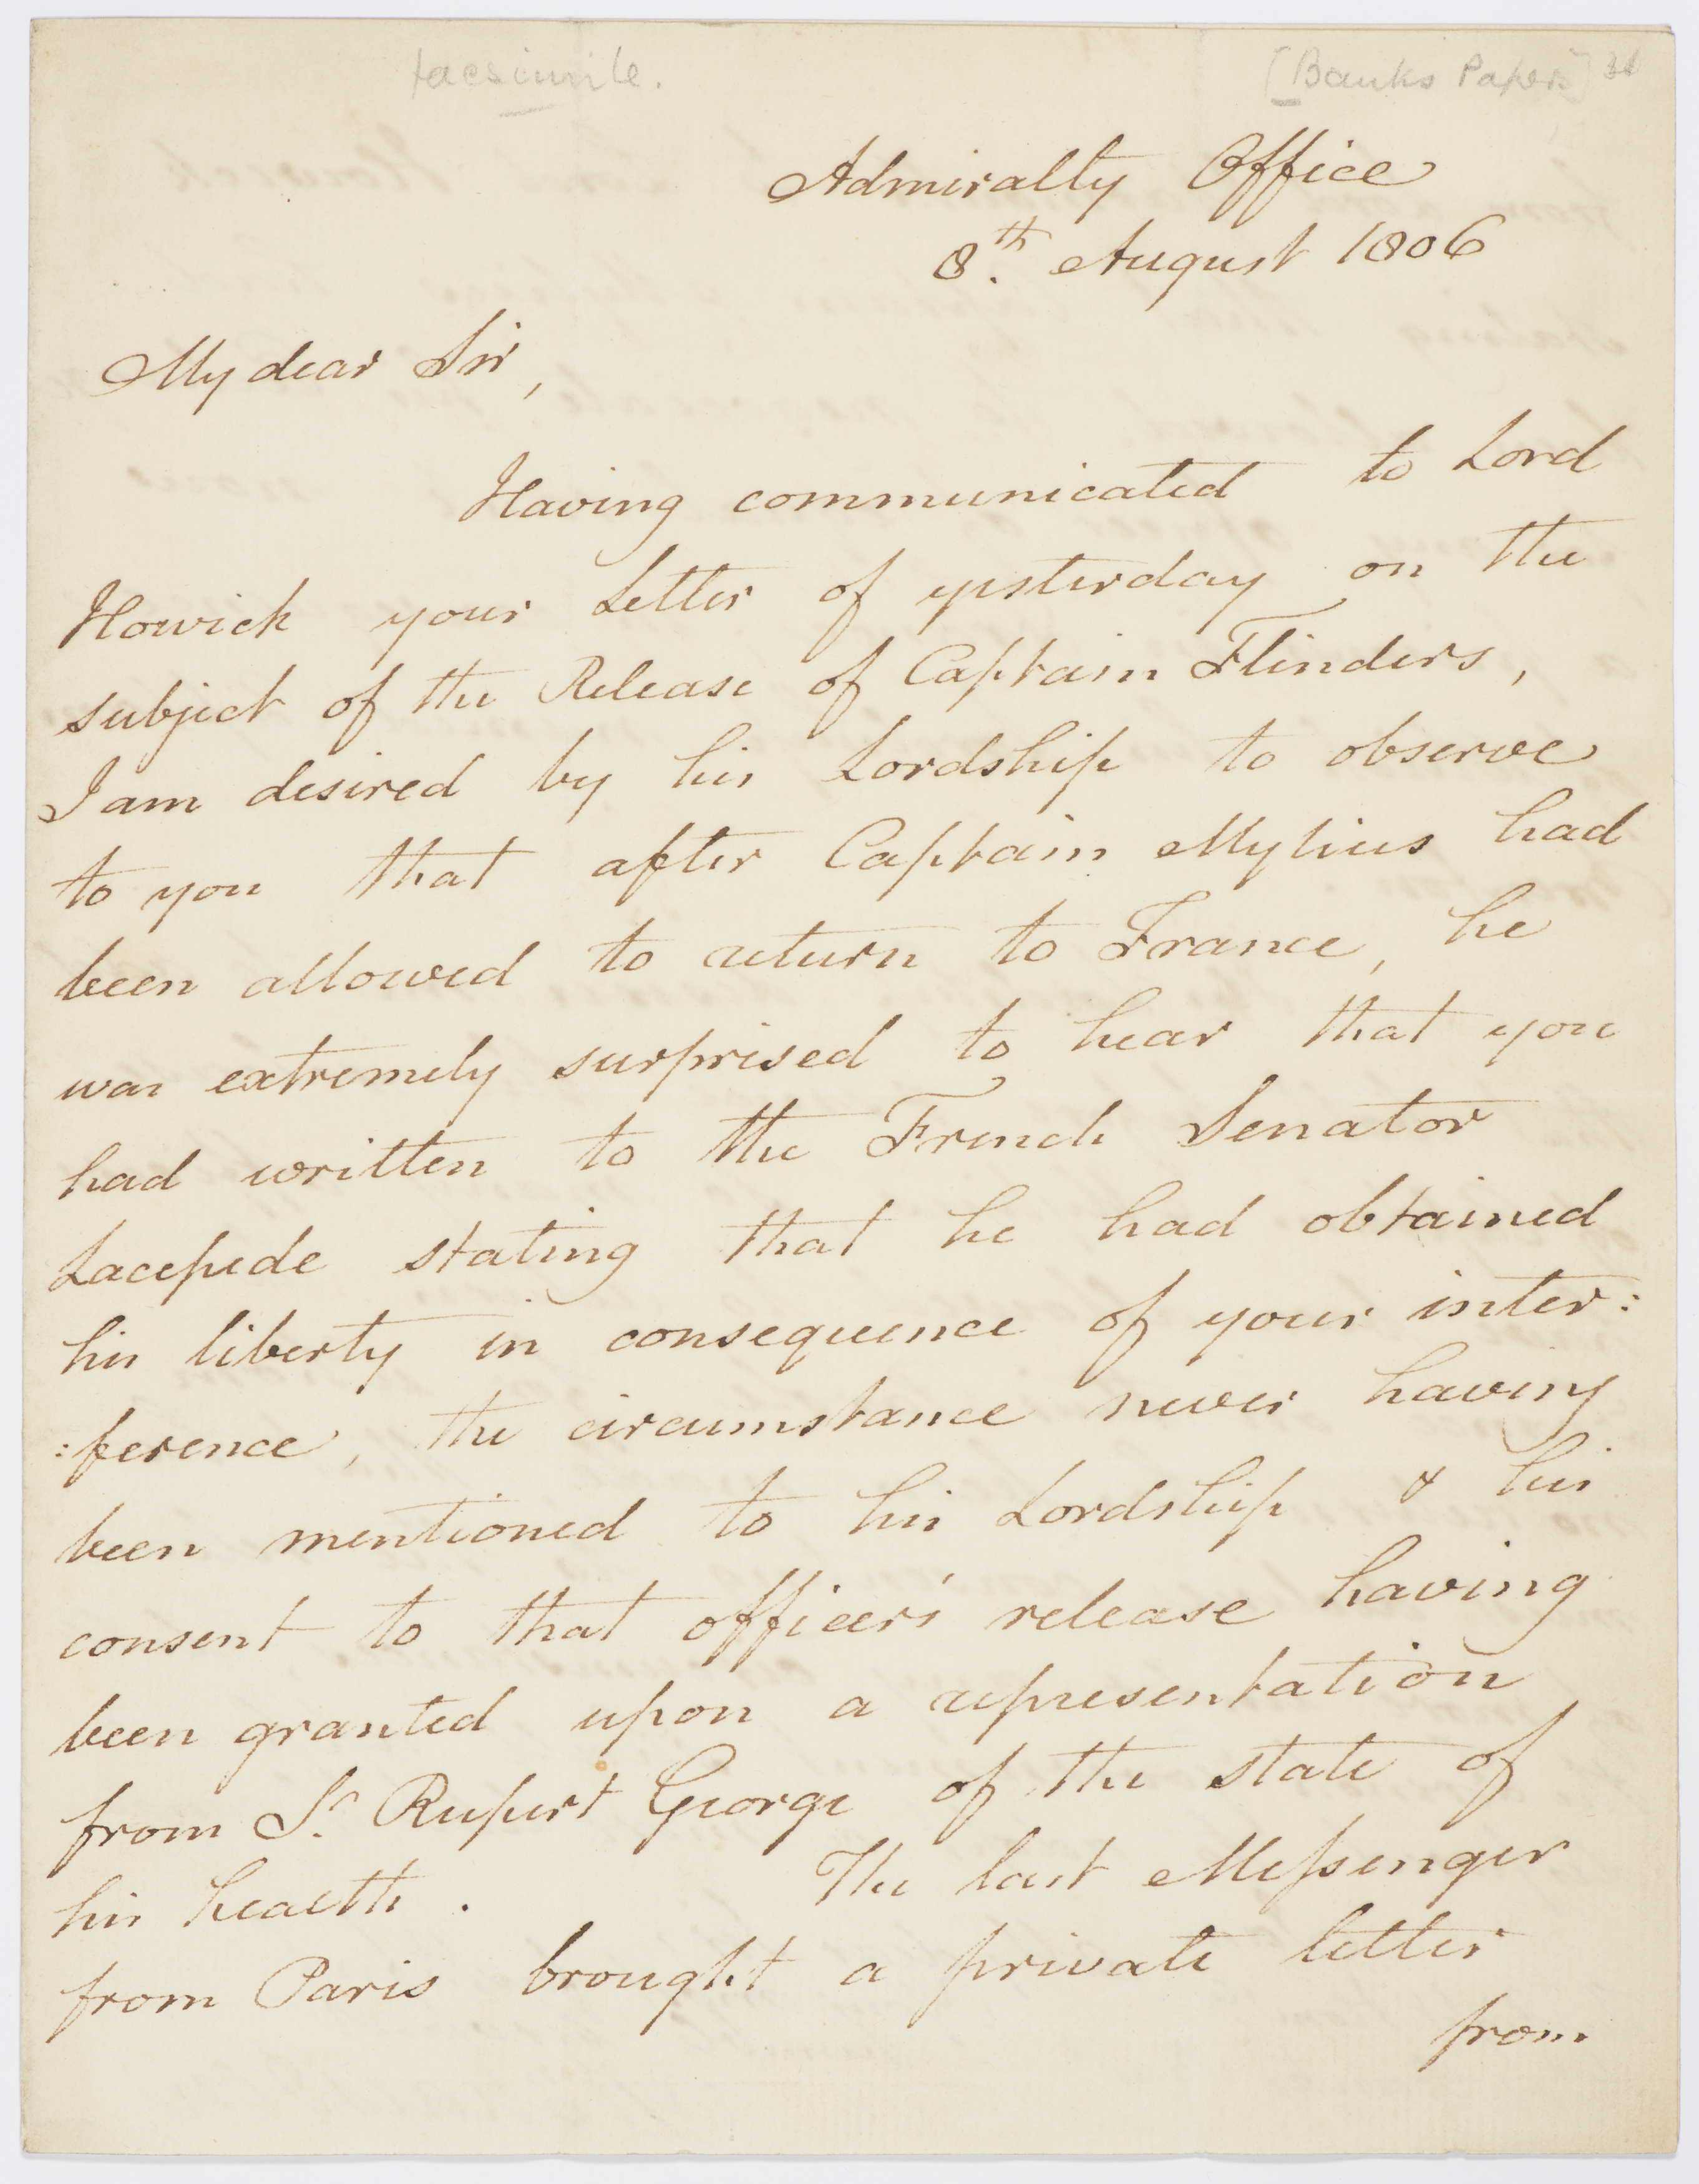 facsimile.
[Banks Papers]
Admiralty Office
8th. August 1806
My dear Sir,
Having communicated to Lord
Howick your Letter of yesterday on the
subject of the Release of Captain Flinders,
I am desired by his Lordship to observe
to you that after Captain Mylius had
been allowed to return to France, he
was extremely surprised to hear that you
had written to the French Senator
Lacepede stating that he had obtained
his liberty in consequence of your inter:
:ference, the circumstance never having
been mentioned to his Lordship & his
consent to that officer's release having
been granted upon a representation
from Sr. Rupert George of the state of
his health. The last Messenger
from Paris brought a private letter
from